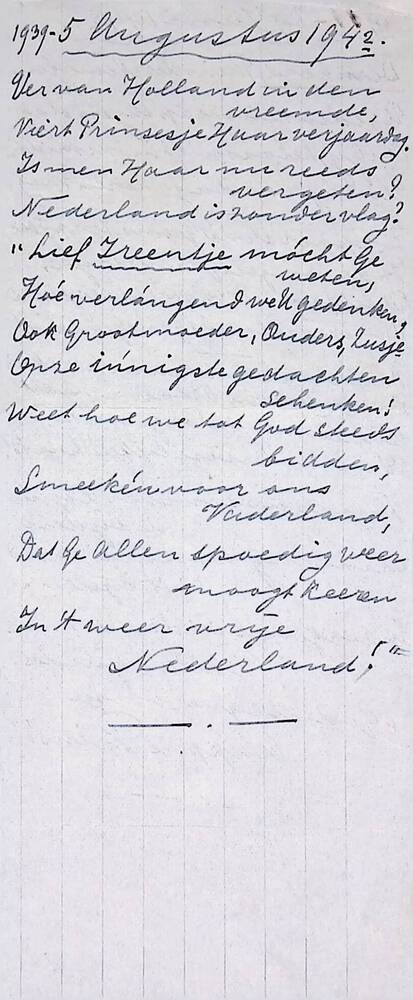 1939-5 Augustus 1942.
Ver van Holland in den
vreemde,
Viert Prinsesje Haar verjaardag.
Is men Haar nu reeds
vergeten?
Nederland is zonder vlag?
"Lief Ireentje mócht Ge
weten,
Hoé verlángend we U gedenken,
Ook Grootmoeder, Ouders, Zusje
Onze ínnigste gedachten
schenken!
Weet hoe we tot God steeds
bidden,
Smeekén voor ons
Vaderland,
Dat Ge Allen spoedig weer
moogt keeren
In 't weer vrije
Nederland!"